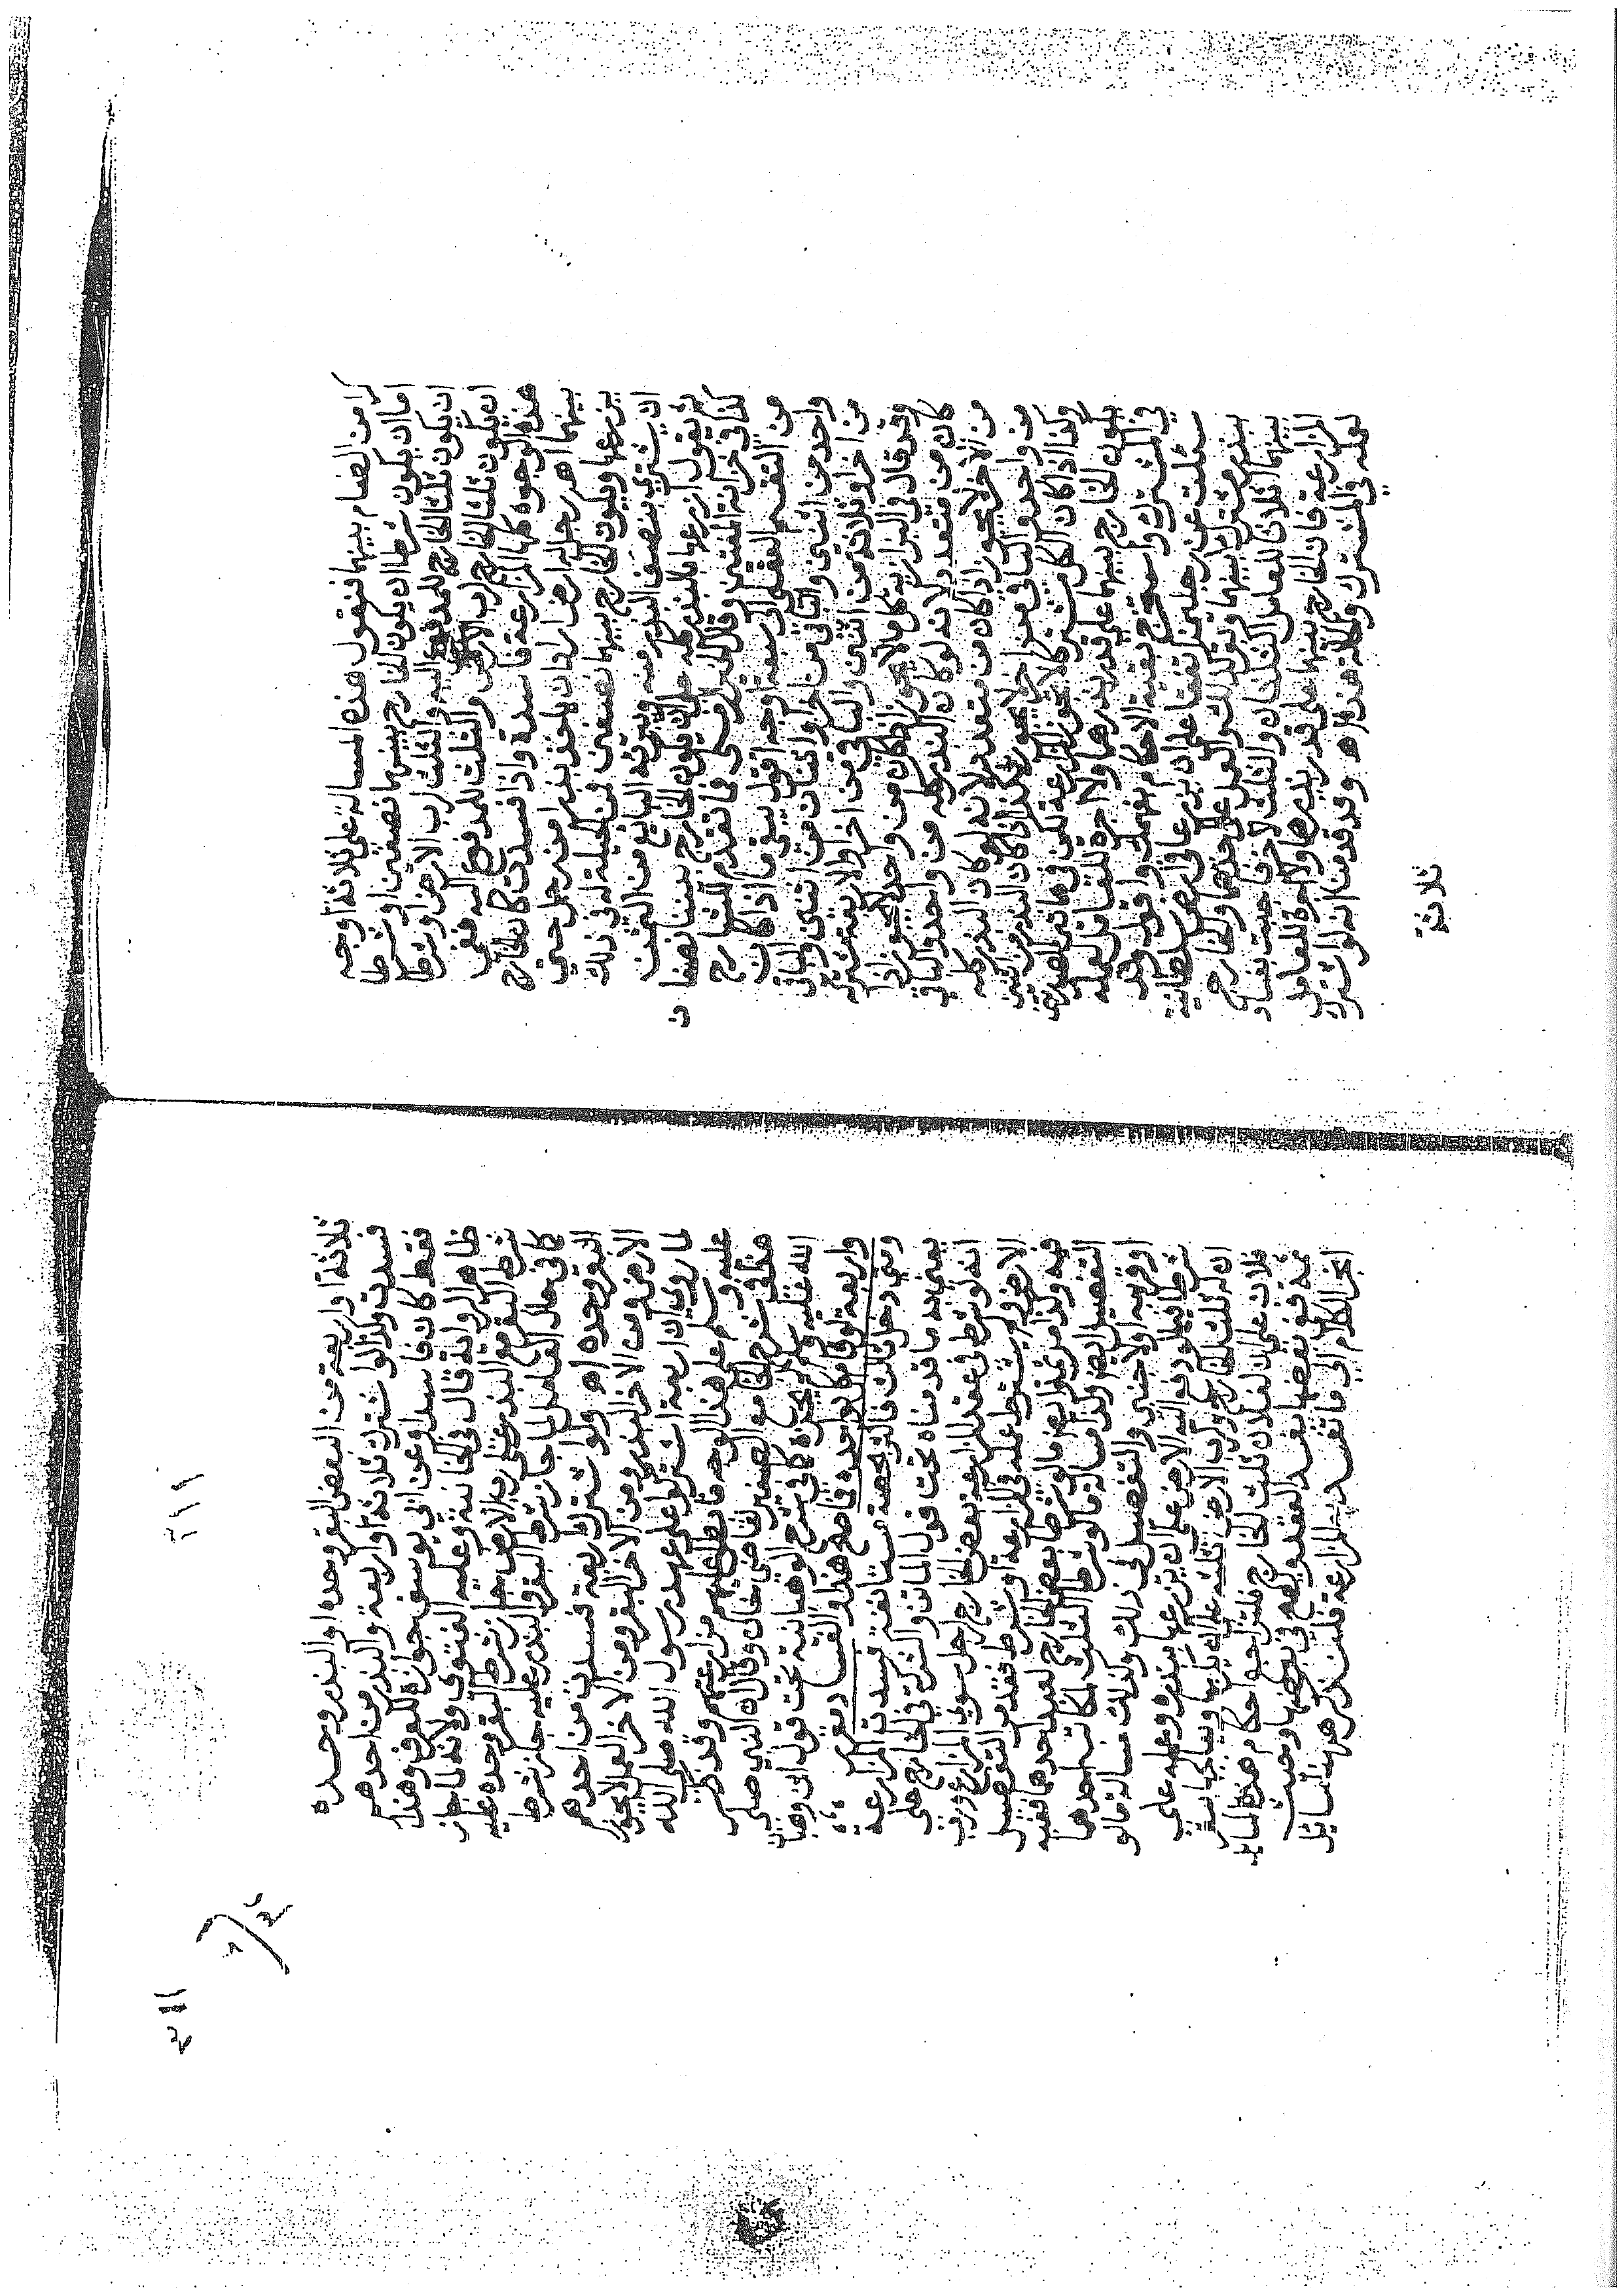 كرا من الطعام بينهما فنقول هذه المسالة على ثلاثة اوجه
اما ان يكون شرطا ان يكون الخارج بينهما نصفين او شرطا
ان يكون ثلثا الخارج للمدفوع اليه والثلث لرب الارض او شرطا
ان يكون ثلثا الخارج لرب الارض والثلث للمدفوع اليه ففي
هذه الوجوه كلها المزارعة فاسدة واذا فسدت كان الخارج
بينهما اهـ رجل له ارض اراد ان ياخذ بذرا من رجل حتى
يزرعها ويكون الخارج بينهما نصفين فالحيلة له في ذلك
ان يشتري نصف البذر منه ويبرئه البايع من الثمن
ثم يقول ازرعها بالبذر كله على ان يكون الخارج بيننا نصفان
كذا في خزانة المفتين وقال الخير الرملي فما تقدم للشارح
من التقسيم العقلي الى سبعة اوجه اقول بقي ما اذا كان
واحد من اثنين والثاني من اخر او اثنان من اثنين والباقي
من اخر او ثلاثة من اثنين والباقي من اخر او الاربعة مشتركة
وقد قال في البزازية كل ما لا يجوز اذا كان من واحد لا يجوز اذا
كان من متعدد لانه لو كان البذر كله من واحد والباقي
من الاخر لا يجوز اذا كان من متعدد لانه لو كان البذر كله
من واحد والباقي من اخر لا يجوز فكذا اذا كان البذر من اثنين
وكذا اذا كان الكل مشتركا لا تجوز المزارعة لكن في هاتين الصورتين
يكون الخارج بينهما على قدر بذرهما ولا اجرة للعامل لعمله
في المشترك واستخرج بقية الاحكام بفهمك واقول وقد
سئلت عن رجلين اتفقا على ان يزرعا في ارض سلطانية
ببذر مشترك بينهما وبقر كذلك والعمل على احدهما والخارج
بينهما اثلاثا للعامل الثلثان والثلث للاخر فاجبت بفساد
المزارعة فان الخارج بينهما على قدر بذرهما ولا اجرة للعامل
لعمله في المشترك والحالة هذه اهـ وقد قدمنا انه لو اشترك
ثلاثة
ثلاثة او اربعة من البعض البقر وحده او البذر وحده
فسدت وكذا لو اشترك ثلاثة او اربعة والبذر من احدهم
فقط كان فاسدا وعن ابي يوسف جوازه للعرف وهذا
ظاهر الرواية قال في الخانية وعليه الفتوى ولانه لما جاز
شرط البقر مع البذر على رب الارض جاز شرط البقر وحده عليه
كما في حال العامل لما جاز شرط البقر والبذر عليه جاز شرط
البقر وحده اهـ ولو اشترك اربعة فسدت من احدهم
الارض ومن الاخر البذر ومن الاخر البقر ومن الاخر العمل لا يجوز
لما روي ان اربعة اشتركوا على عهد رسول الله صلى الله
عليه وسلم على هذا الوجه فابطل عليهم مزارعتهم وقد ذكر
هنا في شرح الجامع الصغير لقاضي خان وقال ان النبي صلى
الله عليه وسلم لم يجزه كما في شرح الوهبانية تحت قول ابن وهبان
واربعة لو قام كل بواحد فما صح هذا والفساد يقرر
وبقي دخل ثالث فالشرط حصة ستاتي فسدت المزارعة
يعني به ما قدمناه تحت قول الماتن والشركة في الخارج حتى
انه لو شرط في عقد المزارعة بعض الخارج لرجل سوى المزارع ورب
الارض ولم يشترط عمله في المزارعة او شرط فقد مر التفصيل
فيه وكذا مر تفصيل ما لو شرطا بعض الخارج لعبد احدهما ففيه
التفصيل ايضا وكذا مسالة ما لو شرط الثلث لمكاتب احدهما
او قريبه او لاجنبي والتفصيل في ذلك وكذلك مسالة ما لو
شرطا فيما لو دفع اليه الارض على ان يزرعها ببذره وعمله على
ان له ثلث الخارج ولرب الارض ثلثه على ان يزرعها ويعالجها ببقر
فلان على ان لفلان ثلث الخارج فلتراجع احكام هذه المسائل
ثمة ففي بعضها يفسد العقد ويصح في بعضها وحيث
انجر الكلام الى ما تفسد به المزارعة فلنذكر هنا مسائل